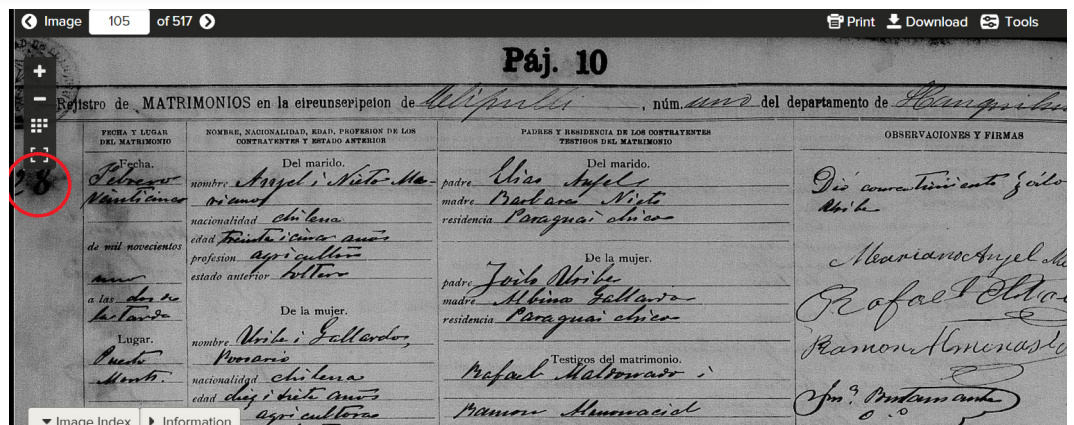 Image 105 of 517 Print Download Tools
Páj. 10
Rejistro de MATRIMONIOS en la circunscripcion de Melipulli, núm. uno del departamento de Llanquihue
FECHA Y LUGAR DEL MATRIMONIO
NOMBRE, NACIONALIDAD, EDAD, PROFESION DE LOS CONTRAYENTES Y ESTADO ANTERIOR
PADRES Y RESIDENCIA DE LOS CONTRAYENTES TESTIGOS DEL MATRIMONIO
OBSERVACIONES Y FIRMAS
28
Fecha.
Febrero
veinticinco
de mil novecientos
uno
a las dos de
la tarde
Lugar.
Puerto
Montt.
Del marido.
nombre Anjel i Nieto Ma-
riano
nacionalidad chilena
edad treinta i cinco años
profesion agricultor
estado anterior soltero
De la mujer.
nombre Uribe i Gallardo,
Rosario
nacionalidad chilena
edad diez i siete años
agricultora
Del marido.
padre Elias Anjel
madre Barbara Nieto
residencia Paraguai chico
De la mujer.
padre Zoilo Uribe
madre Albina Gallardo
residencia Paraguai chico
Testigos del matrimonio.
Rafael Maldonado i
Ramon Almonacid
Dió consentimiento Zoilo
Uribe
Mariano Anjel
Rafael
Ramon Almonasid
Bustamante
Image Index Information